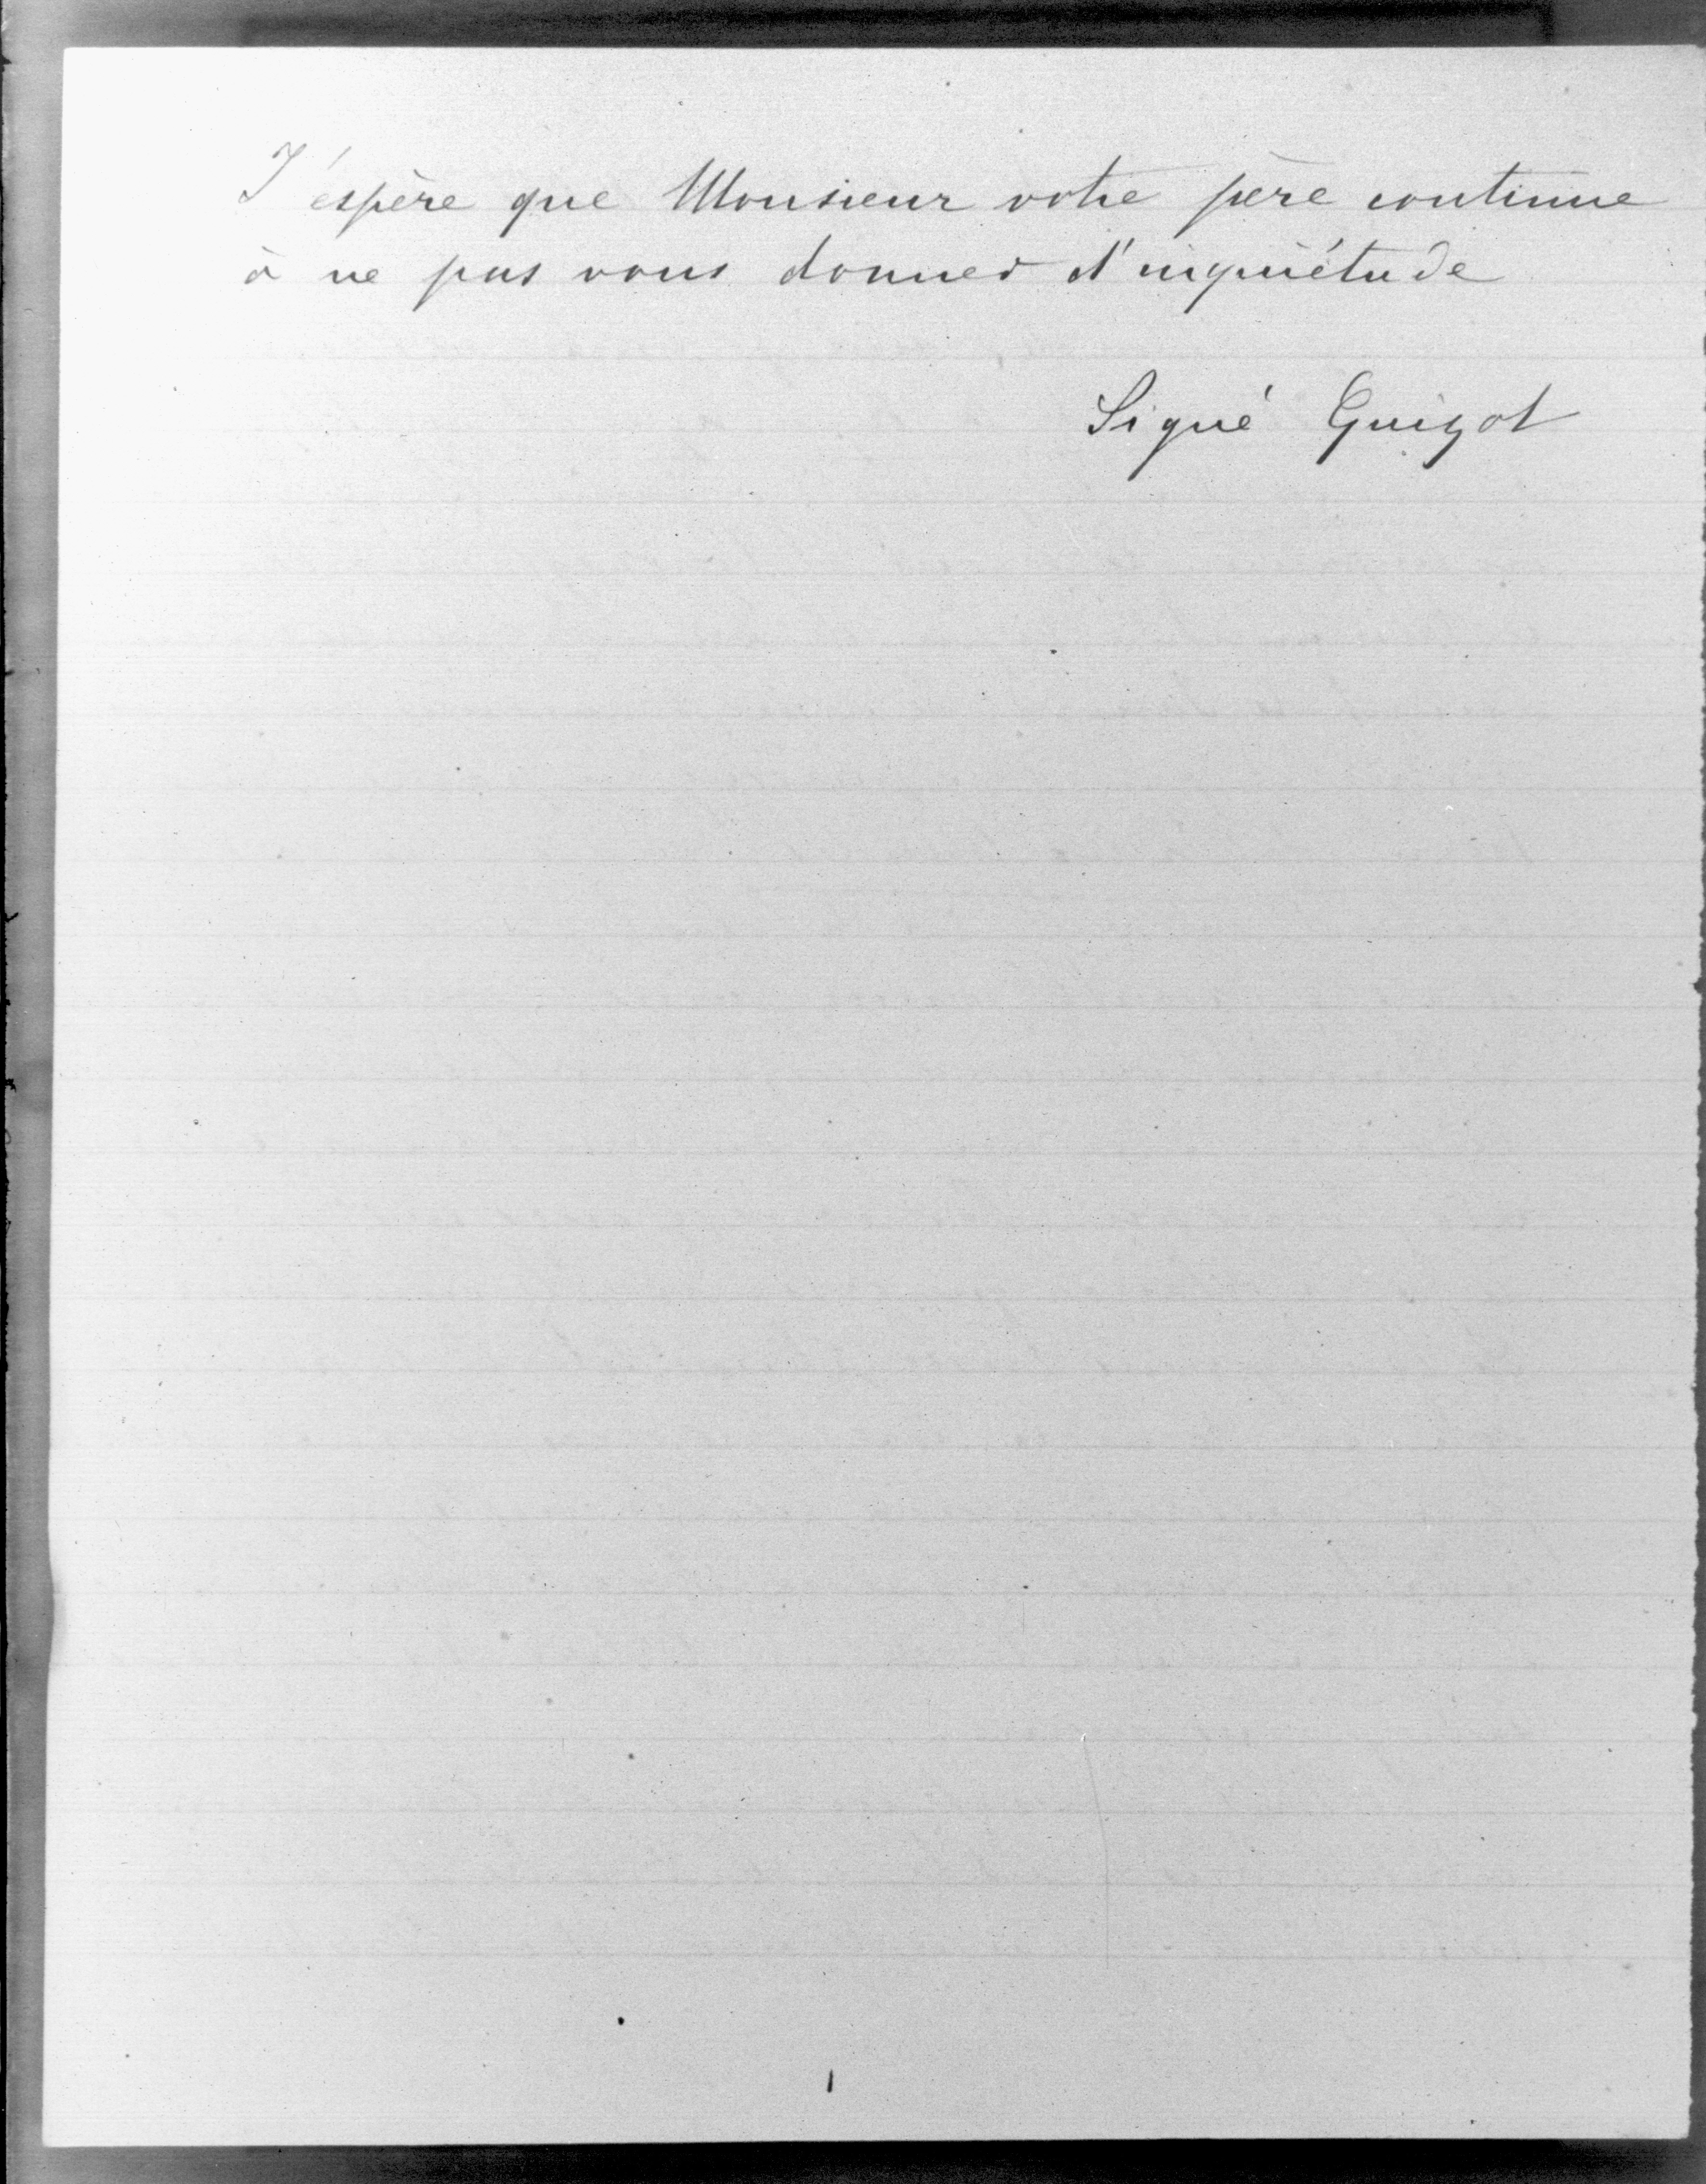 J'espère que Monsieur votre père continue
à ne pas vous donner d'inquiétude
Signé Guizot